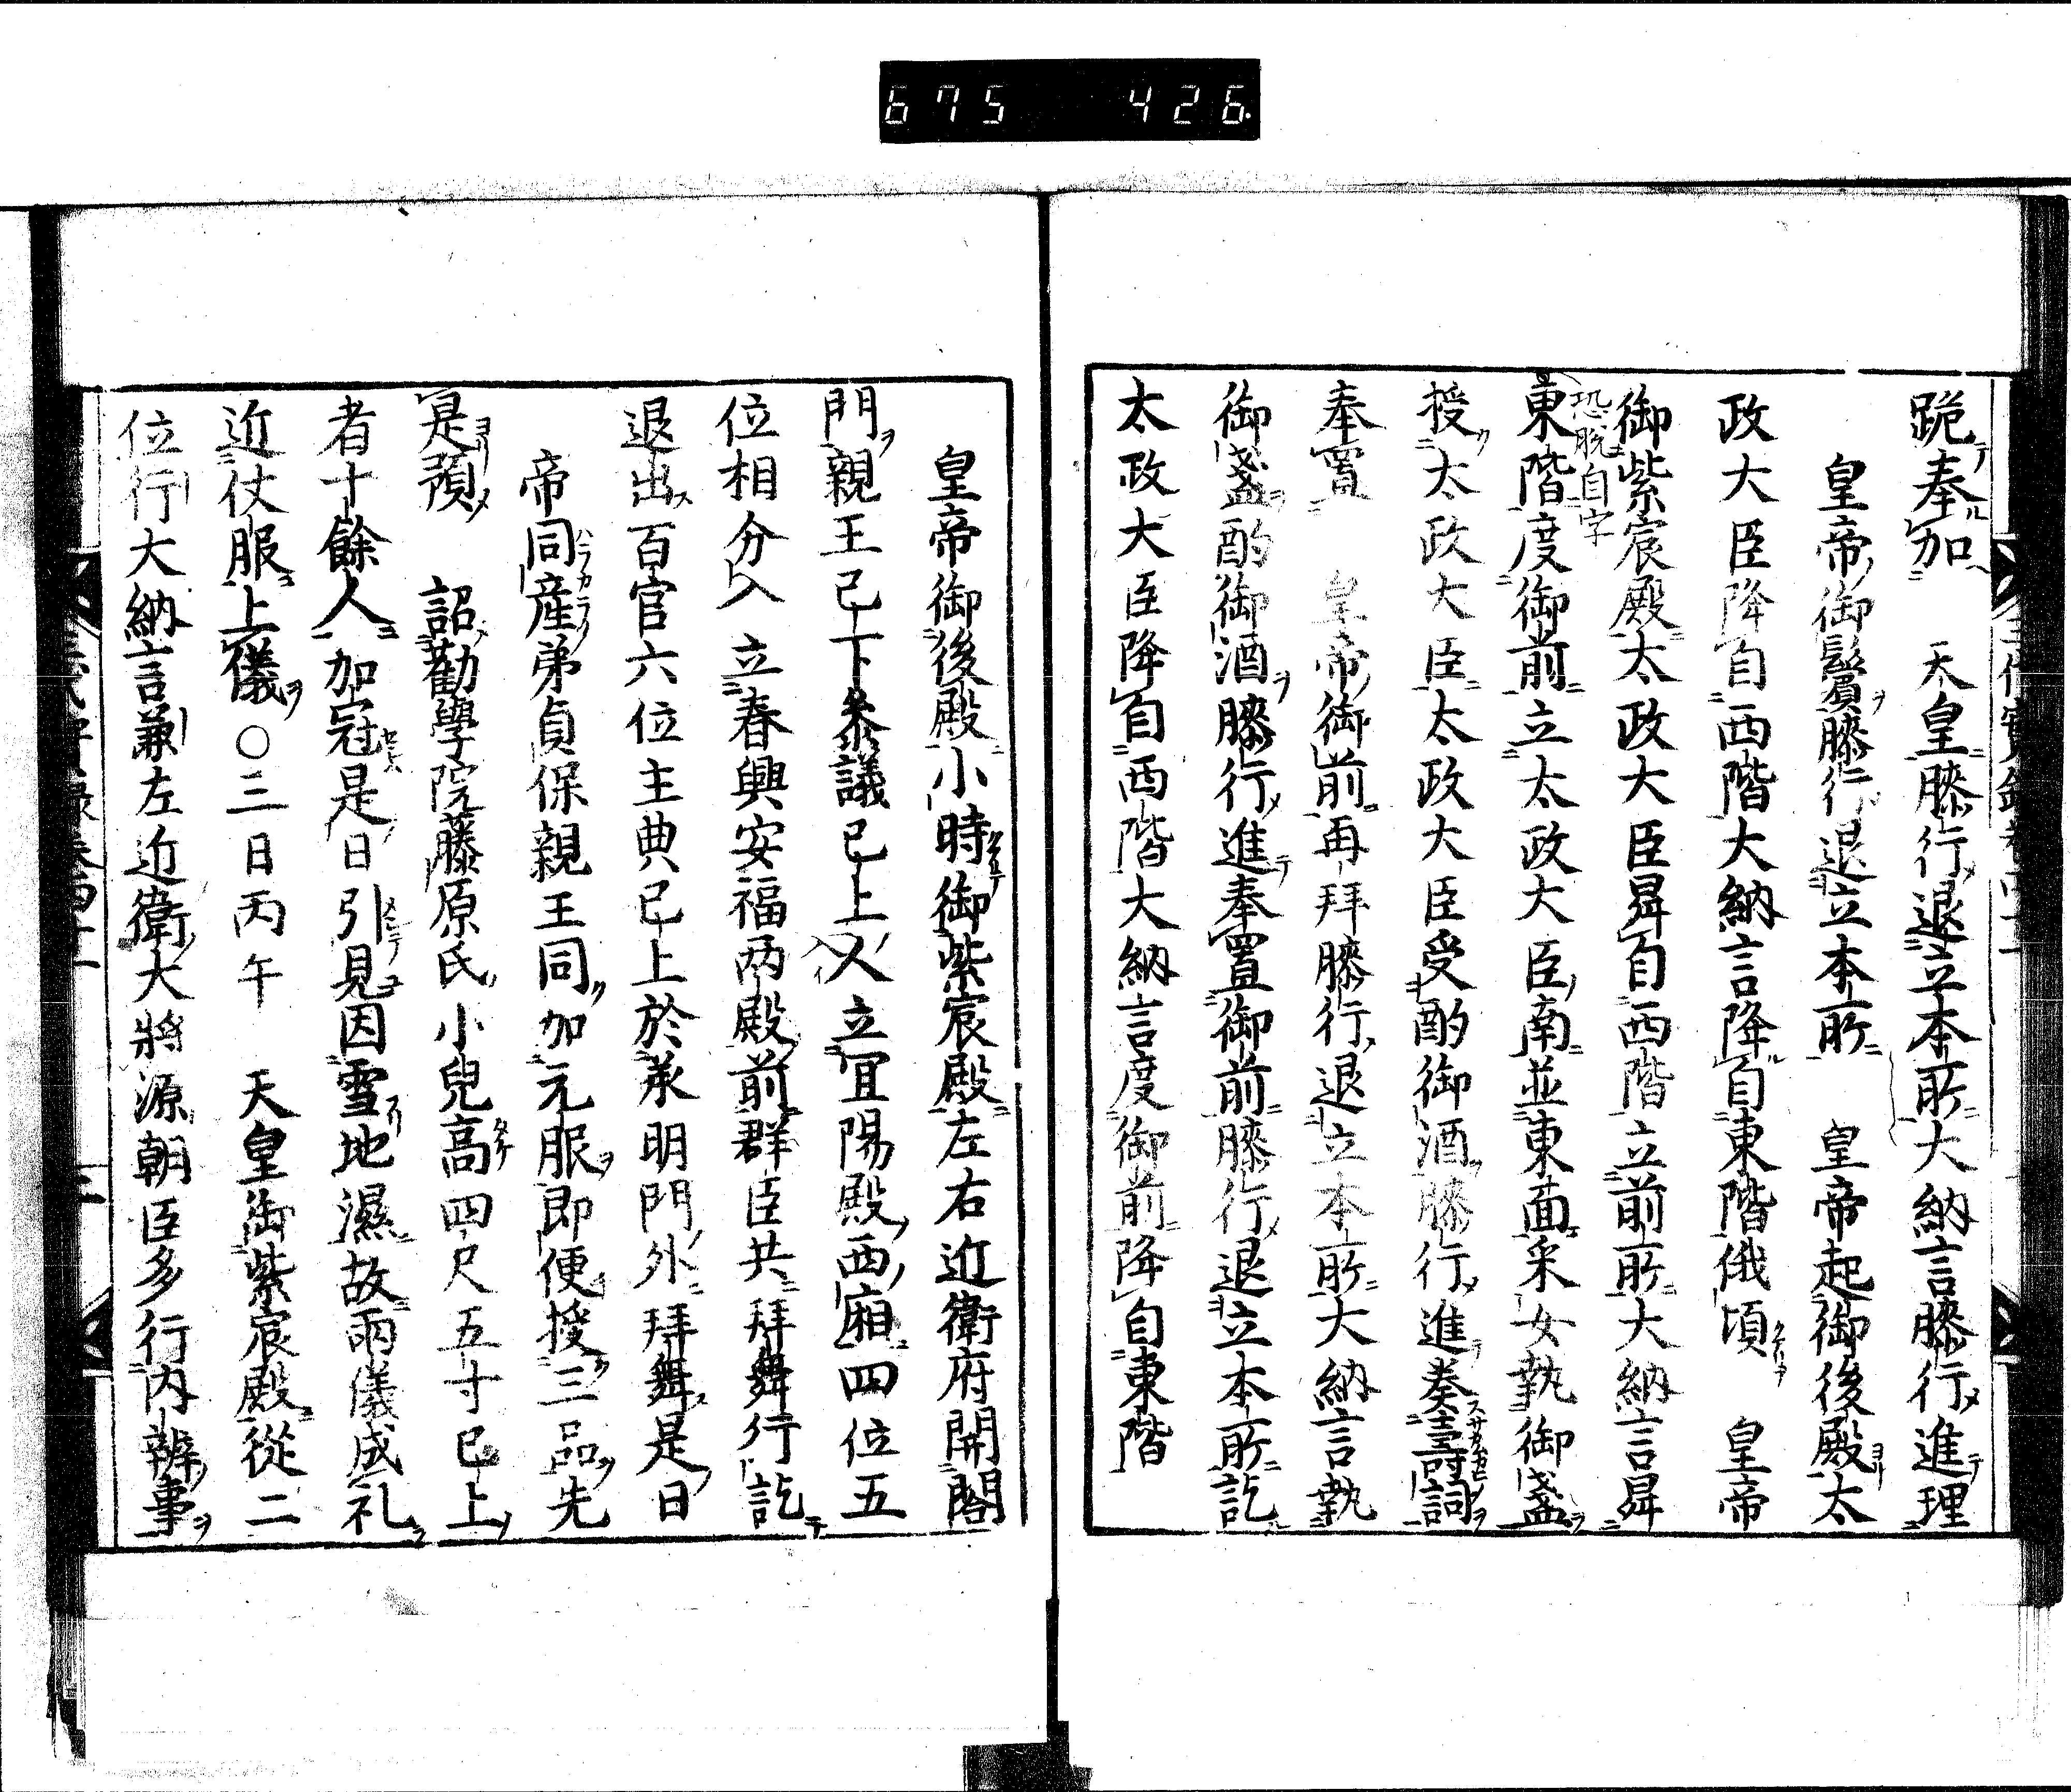 675 426.
跪奉加　天皇膝行退立本所大納言膝行進理
皇帝御鬢膝行退立本所　皇帝起御後殿太
政大臣降自西階大納言降自東階俄頃　皇帝
御紫宸殿太政大臣昇自西階立前所大納言昇
恐脱自字
東階度御前立太政大臣南並東面采女執御盞
授太政大臣太政大臣受酌御酒膝行進奏壽詞
奉置　皇帝御前再拜膝行退立本所大納言執
御盞酌御酒膝行進奉置御前膝行退立本所訖
太政大臣降自西階大納言度御前降自東階
皇帝御後殿小時御紫宸殿左右近衛府開閤
門親王已下參議已上入立宜陽殿西廂四位五
位相分入立春興安福兩殿前群臣共拜舞行訖
退出百官六位主典已上於承明門外拜舞是日
帝同産弟貞保親王同加元服即便授三品先
是預　詔勸學院藤原氏小兒高四尺五寸已上
者十餘人加冠是日引見因雪地濕故兩儀成礼
近仗服上儀〇三日丙午　天皇御紫宸殿從二
位行大納言兼左近衛大將源朝臣多行内辨事